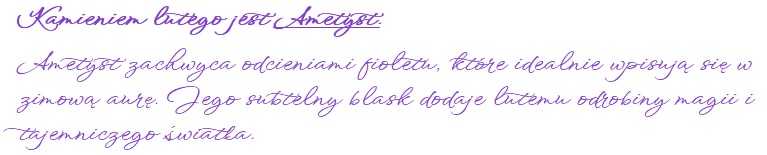 Kamieniem lutego jest Ametyst.
Ametyst zachwyca odcieniami fioletu, które idealnie wpisują się w
zimową aurę. Jego subtelny blask dodaje lutemu odrobiny magii i
tajemniczego światła.